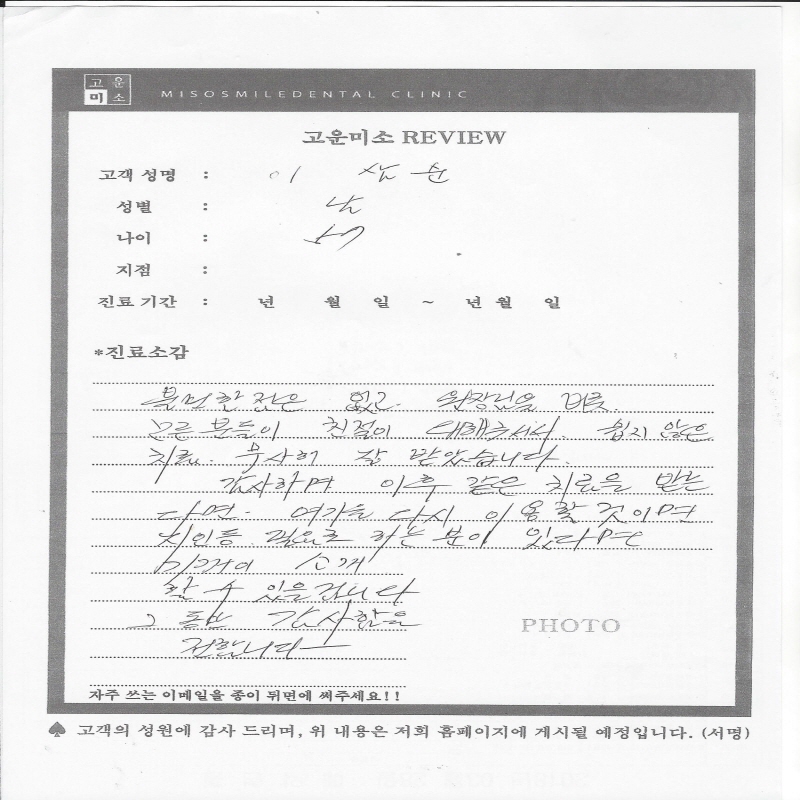 고운
미소
MISOSMILEDENTAL CLINIC
고운미소 REVIEW
고객 성명 : 이 삼순
성별 : 남
나이 :
지점 :
진료 기간 : 년 월 일 ~ 년 월 일
*진료소감
불편한 점은 없고. 원장님을 비롯
모든 분들이 친절히 대해주셔서. 쉽지 않은
치료. 무사히 잘 받았습니다.
감사하며 이후 같은 치료을 받는
다면. 여기를 다시 이용할 것이며
지인등 필요로 하는 분이 있다면
소개
할 수 있을겁니다
그 동안 감사함을
전합니다
PHOTO
자주 쓰는 이메일을 종이 뒤면에 써주세요!!
♠ 고객의 성원에 감사 드리며, 위 내용은 저희 홈페이지에 게시될 예정입니다. (서명)